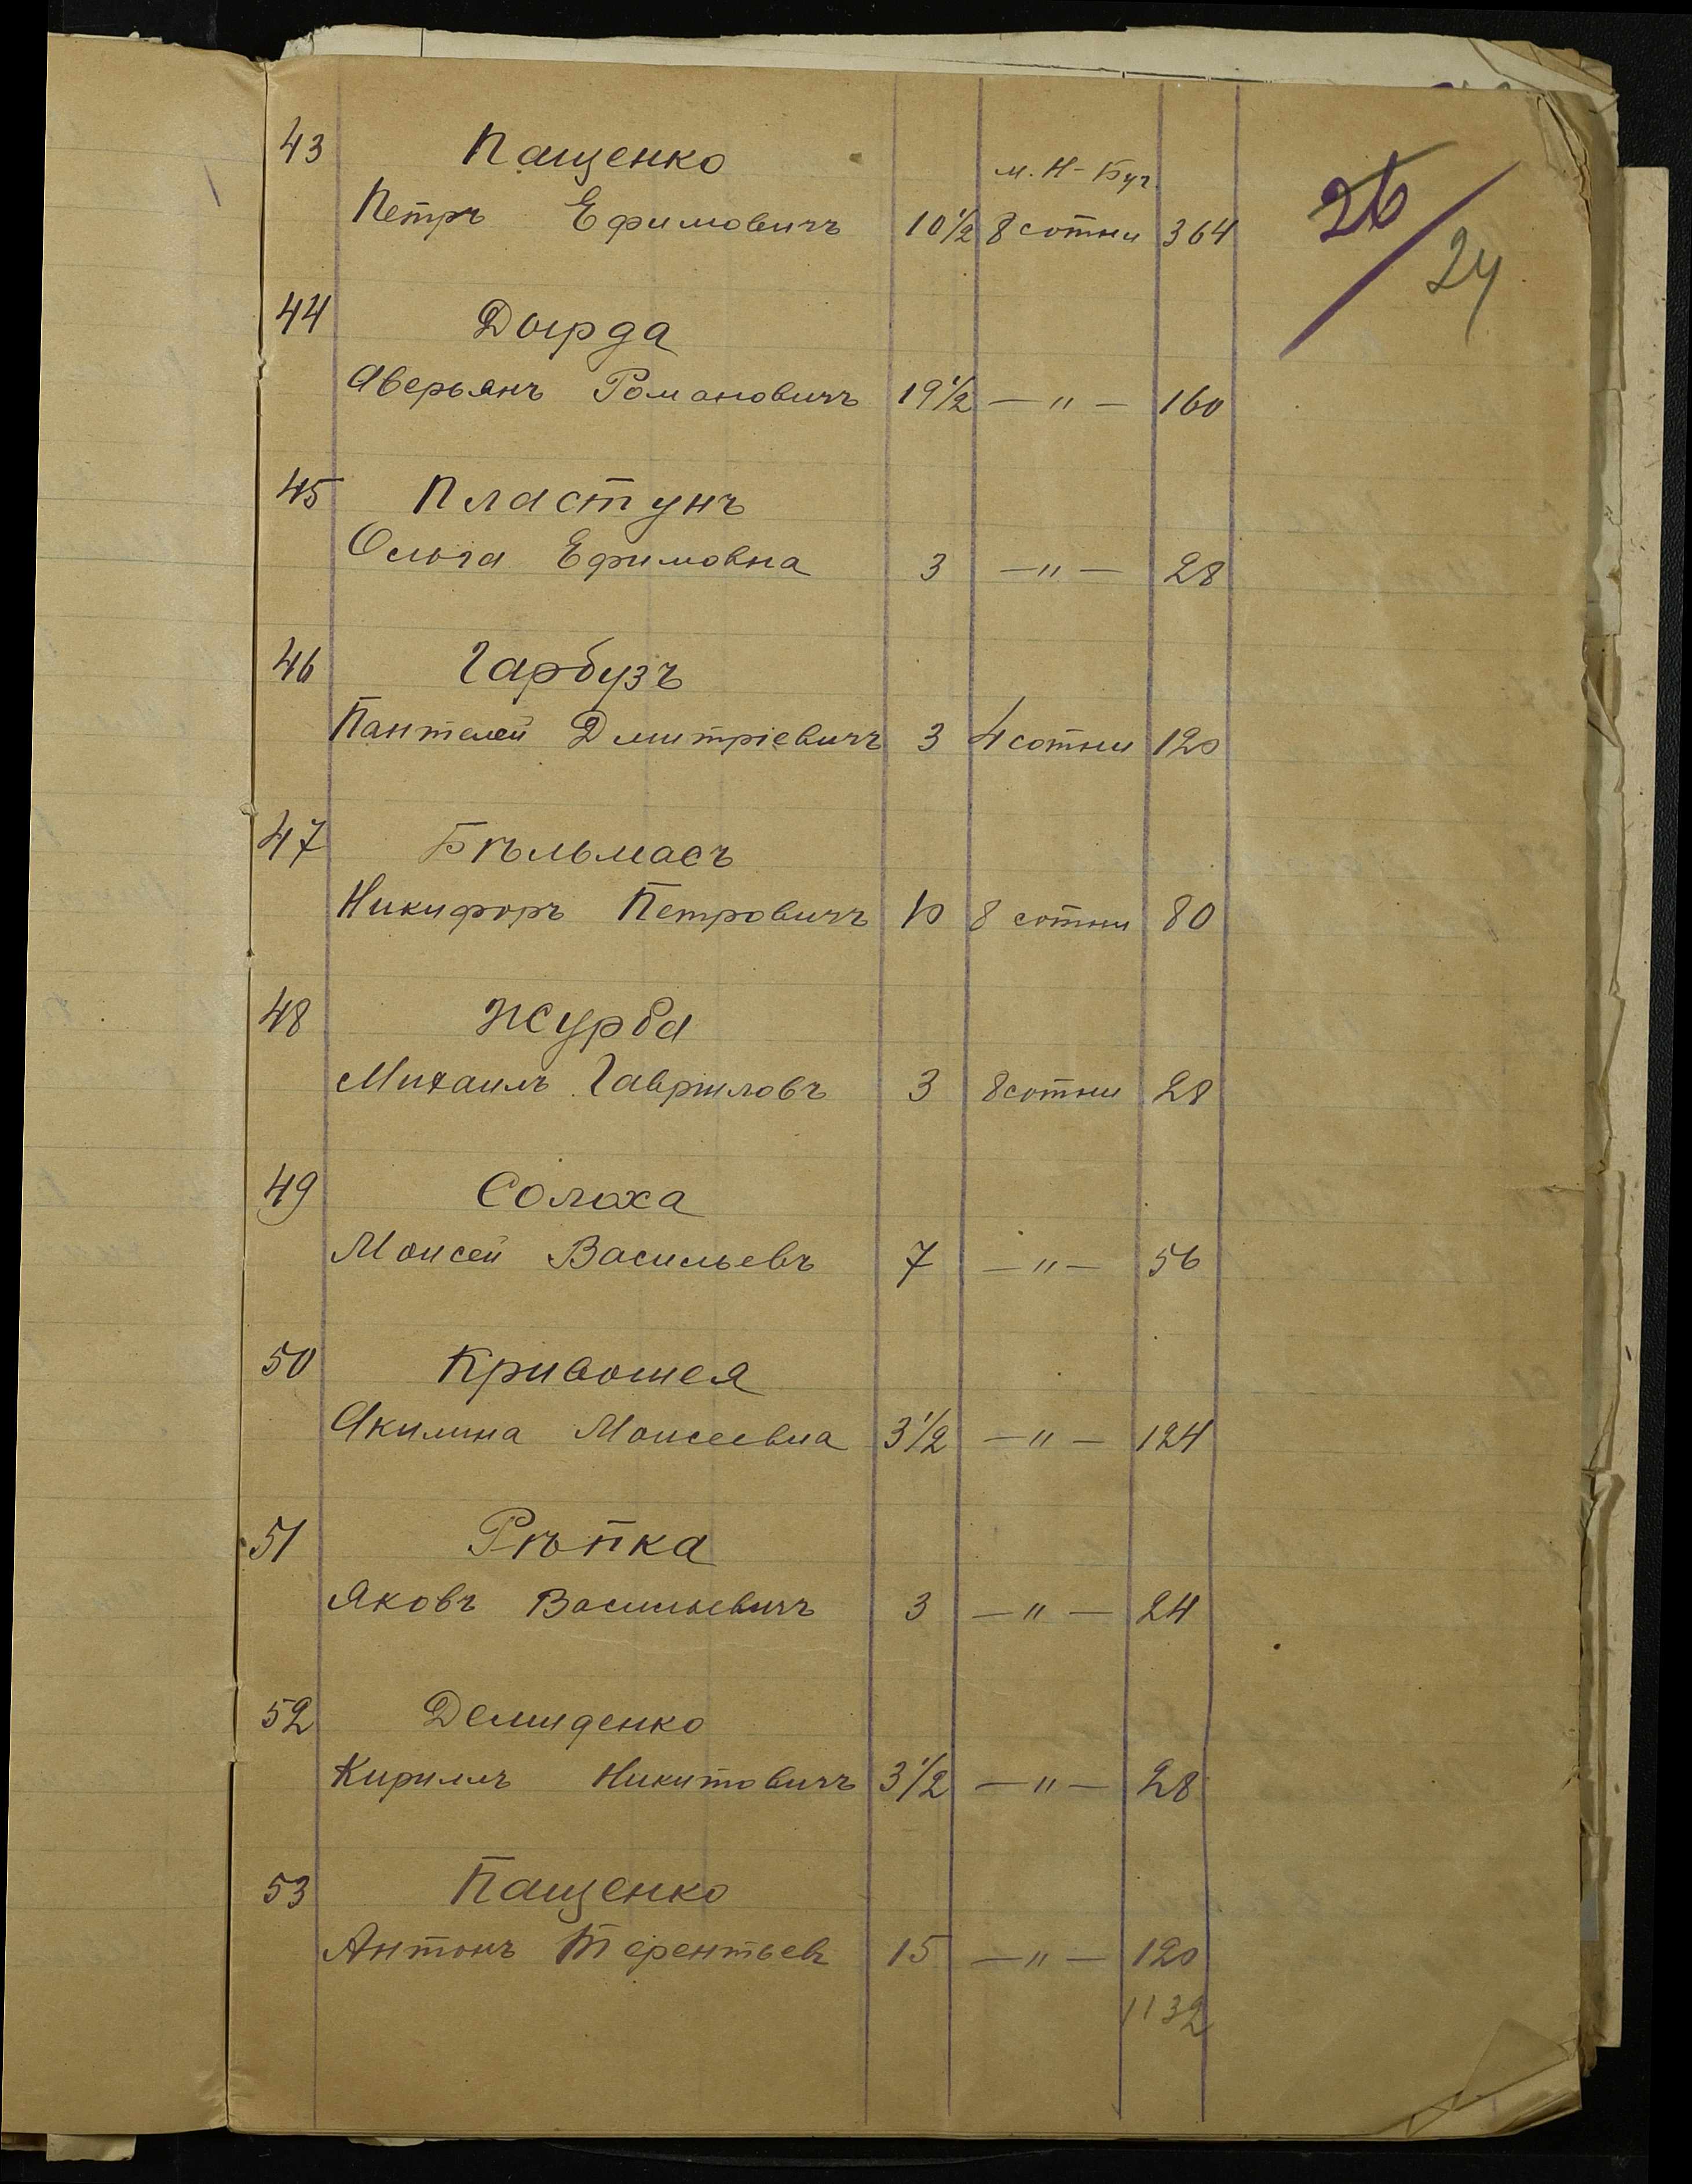 43 Пащенко
м. Н-Буг.
Петръ Ефимовичъ 10 1/2 8 сотни 364
26
24
44 Дырда
Аверьянъ Романовичъ 19 1/2 — " — 160
45 Пластунъ
Ольга Ефимовна 3 — " — 28
46 Гарбузъ
Пантелей Дмитріевичъ 3 4 сотни 120
47 Бѣльмасъ
Никифоръ Петровичъ 10 8 сотни 80
48 Журба
Михаилъ Гавриловъ 3 8 сотни 28
49 Солоха
Моисей Васильевъ 7 — " — 56
50 Кривошея
Акилина Моисеевна 3 1/2 — " — 124
51 Рѣпка
Яковъ Васильевичъ 3 — " — 24
52 Демиденко
Кириллъ Никитовичъ 3 1/2 — " — 28
53 Пащенко
Антонъ Терентьевъ 15 — " — 120
1132